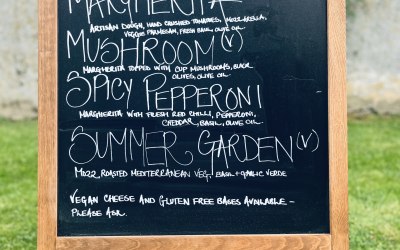 MARGHERITA
ARTISAN DOUGH, HAND CRUSHED TOMATOES, MOZZARELLA,
VEGGIE PARMESAN, FRESH BASIL, OLIVE OIL.
MUSHROOM (V)
MARGHERITA TOPPED WITH CUP MUSHROOMS, BLACK
OLIVES, OLIVE OIL.
SPICY PEPPERONI
MARGHERITA WITH FRESH RED CHILLI, PEPPERONI,
CHEDDAR, BASIL, OLIVE OIL.
SUMMER GARDEN (V)
MOZZ, ROASTED MEDITERRANEAN VEG, BASIL + GARLIC VERDE
VEGAN CHEESE AND GLUTEN FREE BASES AVAILABLE -
PLEASE ASK.